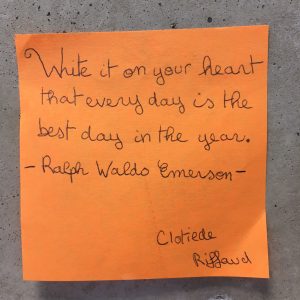 Write it on your heart
that every day is the
best day in the year.
- Ralph Waldo Emerson -
Clotiede
Riffaud